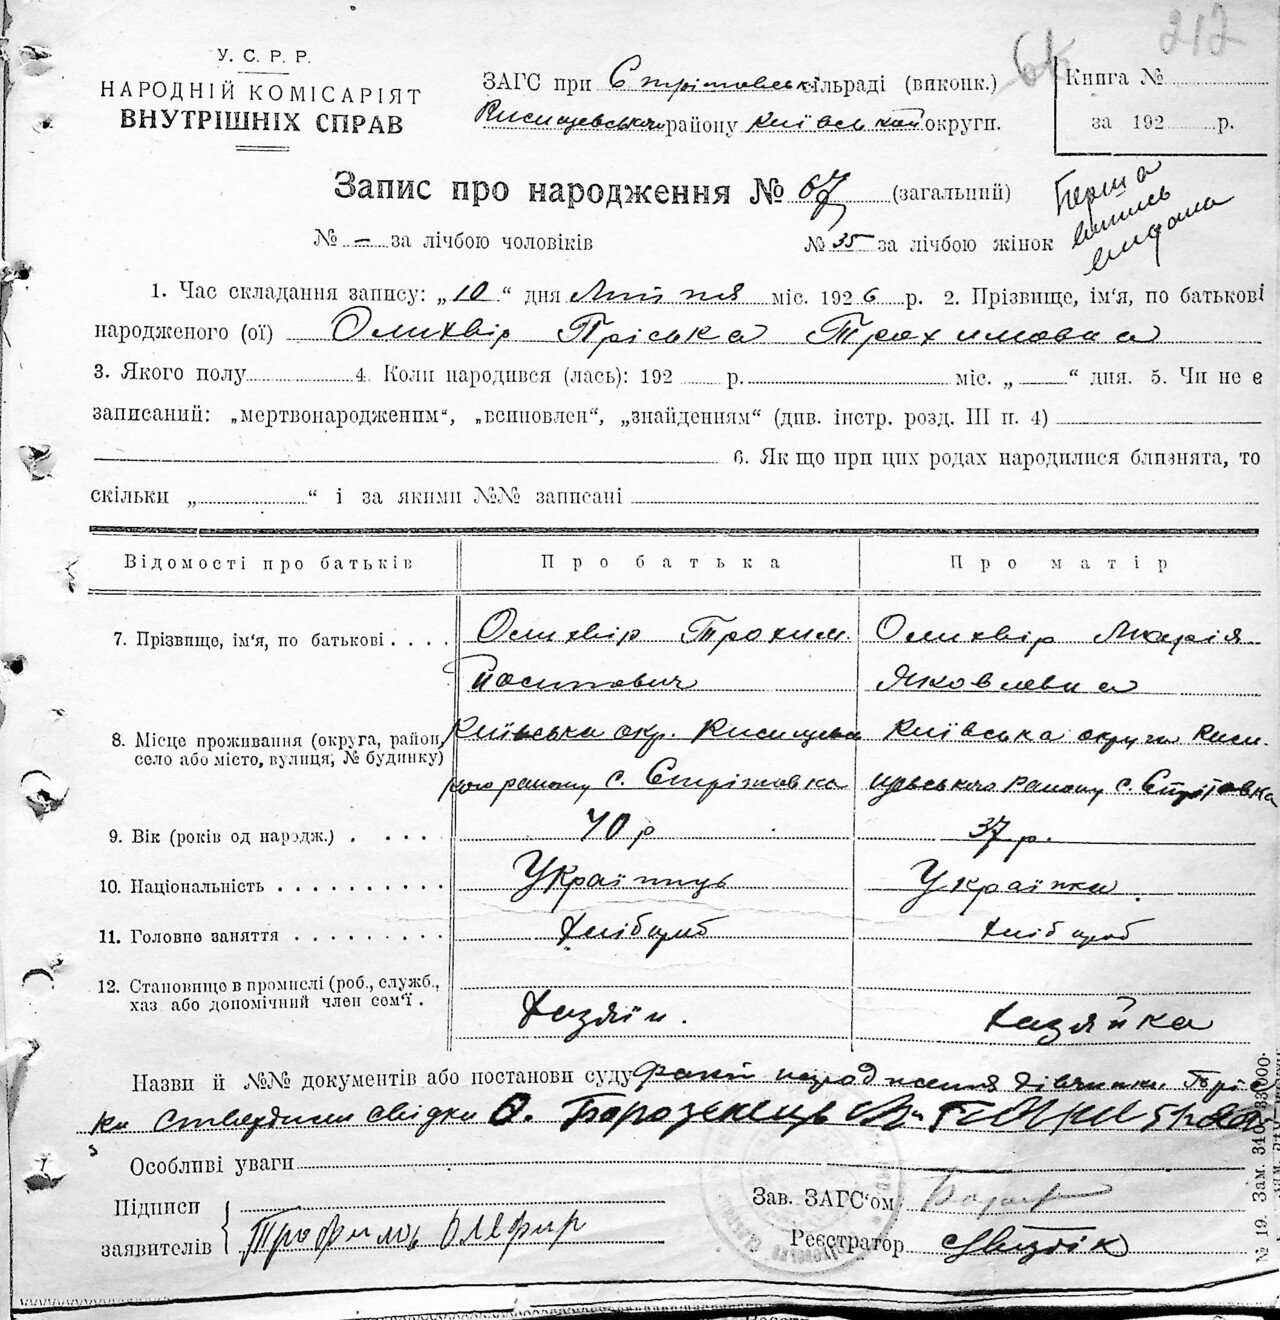 212
У. С. Р. Р.
НАРОДНІЙ КОМІСАРІЯТ
ВНУТРІШНІХ СПРАВ
ЗАГС при Стрітовські сільраді (виконк.)
району Київської округи.
Книга №
за 192 р.
Запис про народження № 67 (загальний)
Перша
випись
видана
№ – за лічбою чоловіків
№ 35 за лічбою жінок
1. Час складання запису: „10“ дня Липня міс. 1926 р. 2. Прізвище, ім'я, по батькові
народженого (ої) Олихвір Пріська Трохимовна
3. Якого полу 4. Коли народився (лась): 192 р. міс. „ “ дня. 5. Чи не є
записаний: „мертвонародженим“, „всиновлен“, „знайденням“ (див. інстр. розд. III п. 4)
6. Як що при цих родах народилися близнята, то
скільки „ “ і за якими №№ записані
Відомості про батьків Про батька Про матір
7. Прізвище, ім'я, по батькові Олихвір Трохим. Олихвір Марія
Йосипович Яковлевна
8. Місце проживання (округа, район, село або місто, вулиця, № будинку) Київська окр. Київська округа
району с. Стрітовка району с. Стрітовка
9. Вік (років од народж.) 40 р 37 р.
10. Національність Українць Українка
11. Головне заняття Хлібороб Хлібороб
12. Становище в промислі (роб., служб.,
хаз або допомічний член сем'ї. Хазяїн. Хазяйка
Назви й №№ документів або постанови суду факт народження дівчинки Пріс
ки ствердили свідки О. Борозенець
Особливі уваги
Підписи
заявителів Трофимъ Олефир
Зав. ЗАГС'ом
Реєстратор
№ 19. Зам. 340—33000.